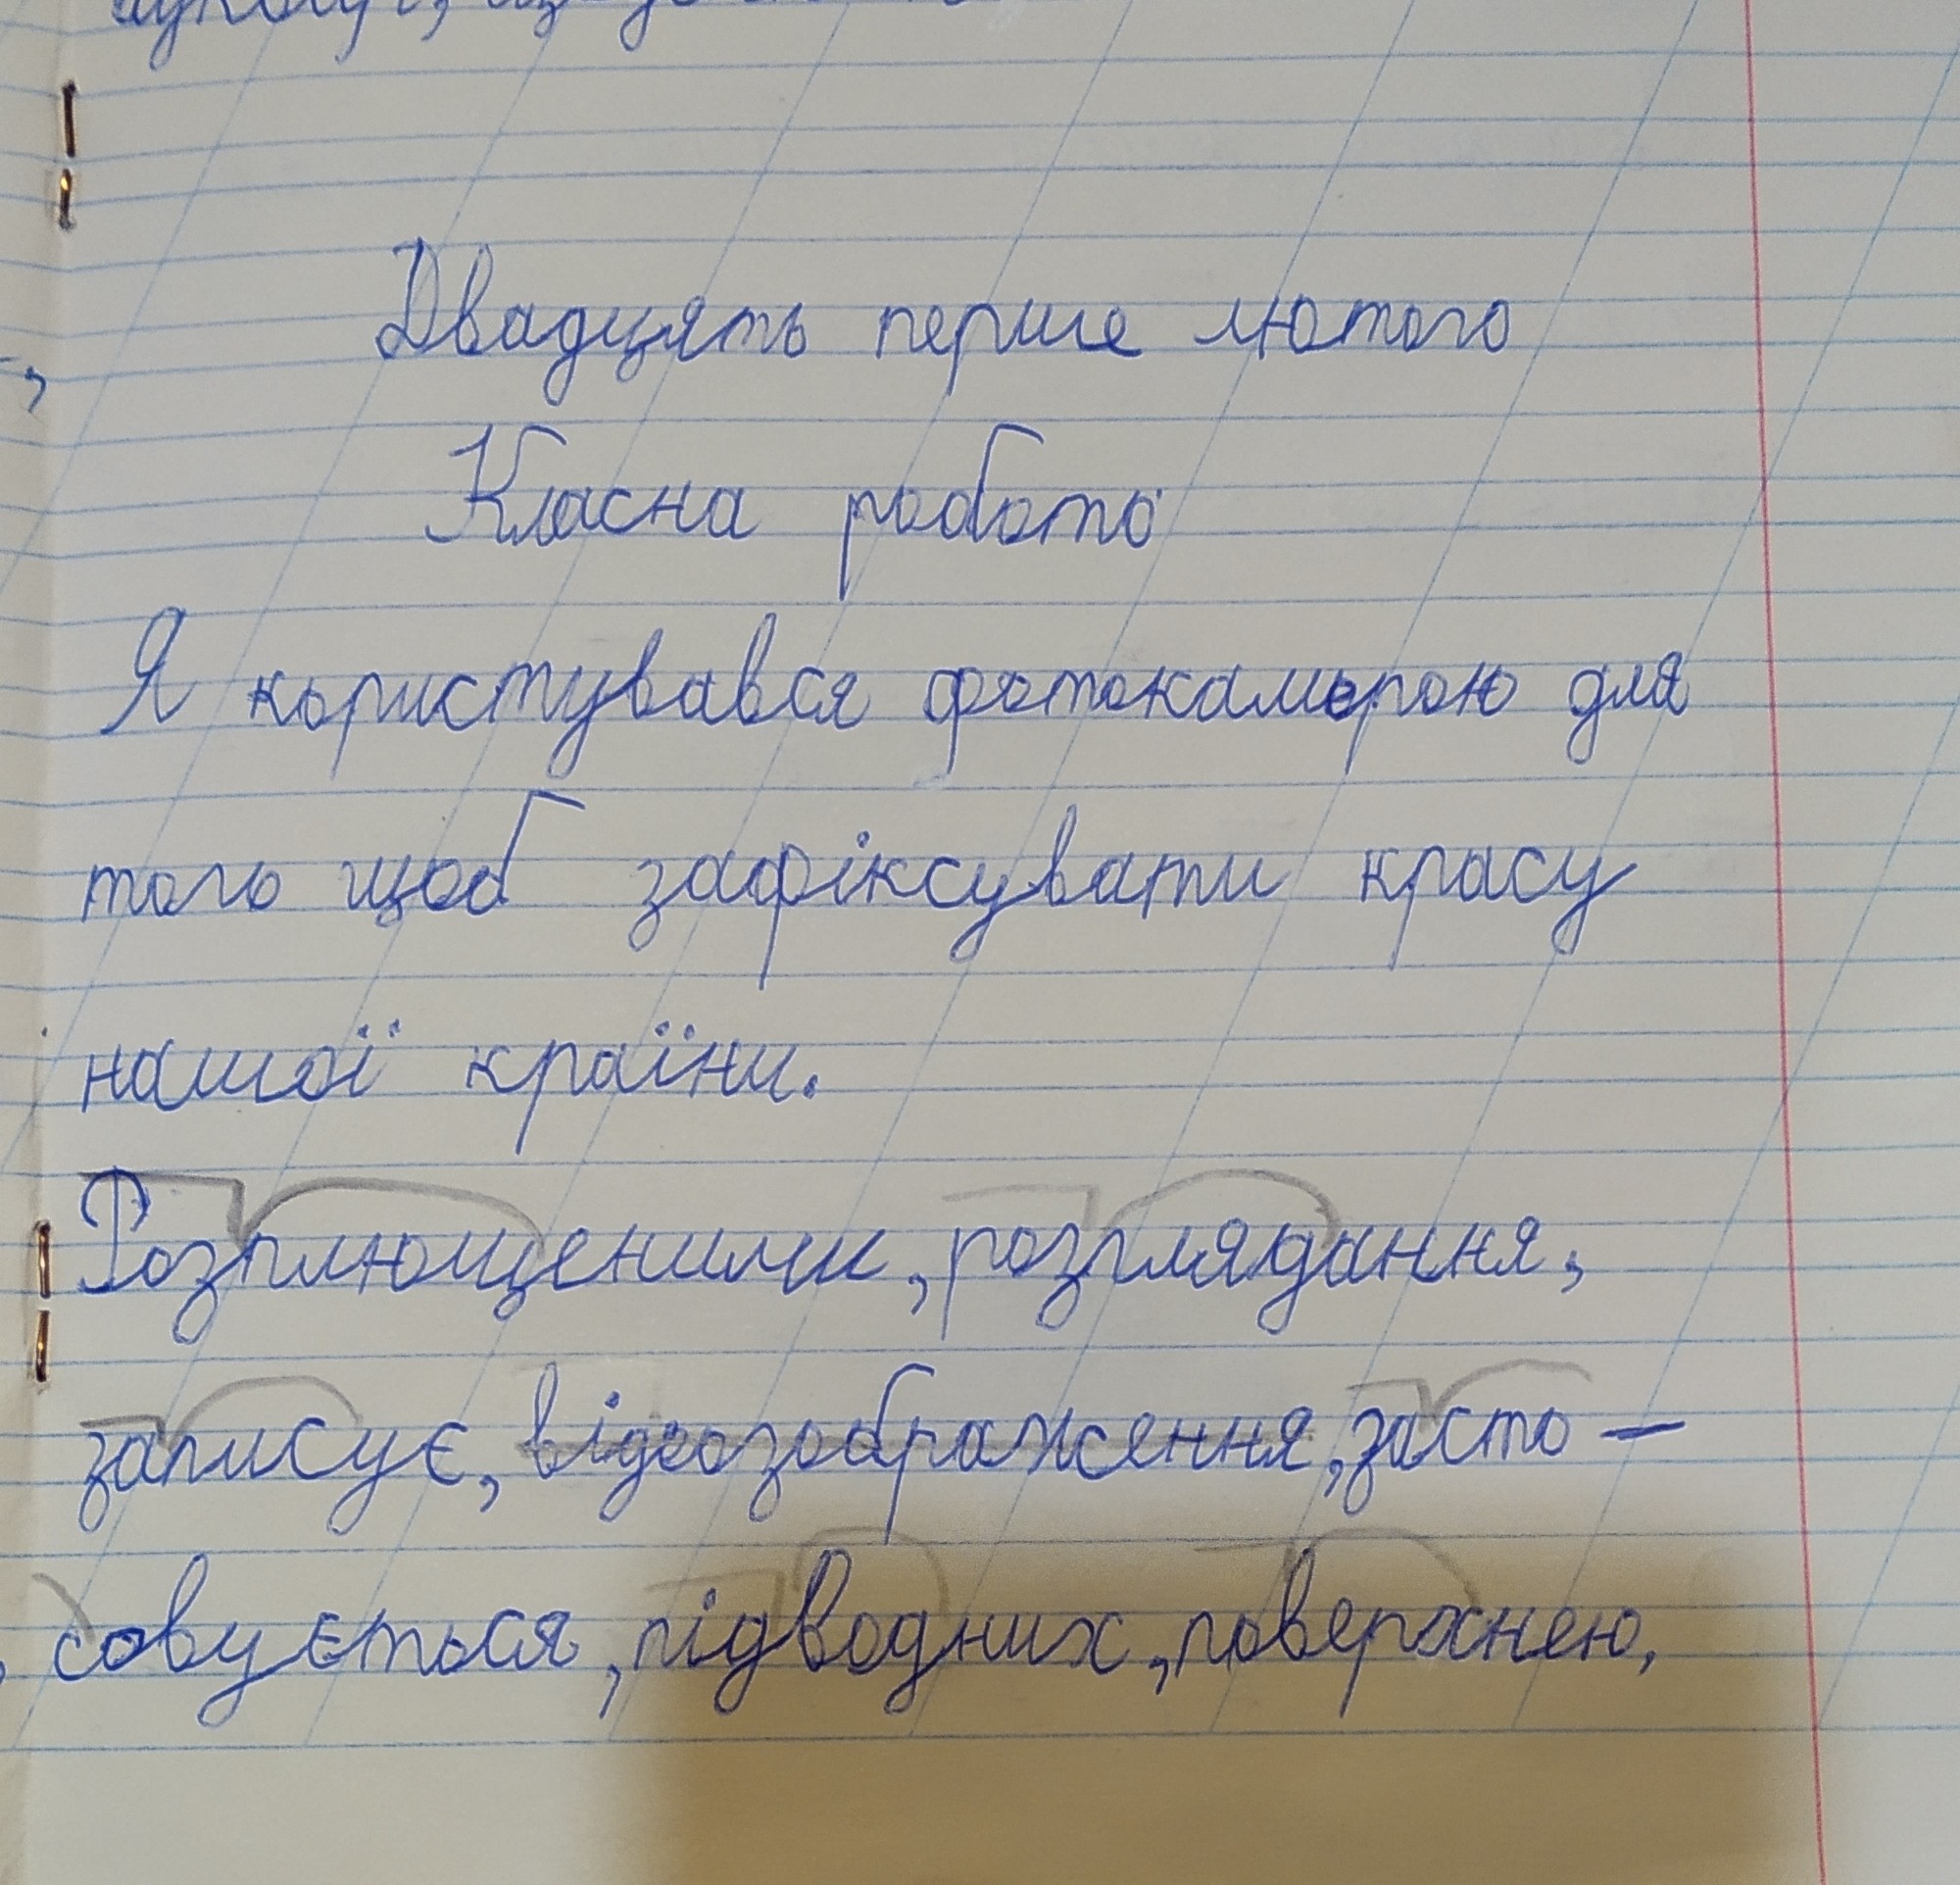 Двадцять перше лютого
Класна робота
Я користувався фотокамерою для
того щоб зафіксувати красу
нашої країни.
Розплющеними, розглядання,
записує, відеозображення, засто-
совується, підводних, поверхнею,